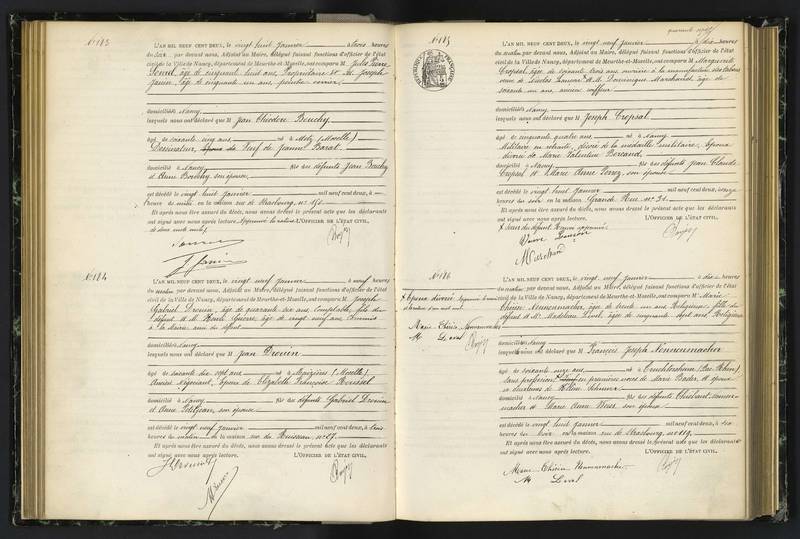 N° 183
L'AN MIL NEUF CENT DEUX, le vingt huit Janvier à trois heures
du soir par devant nous, Adjoint au Maire, délégué faisant fonctions d'officier de l'état
civil de la Ville de Nancy, département de Meurthe-et-Moselle, ont comparu M Jules Pierre
âgé de cinquante huit ans, Propriétaire et M. Joseph
Janin, âgé de cinquante un ans, peintre verrier
domiciliés à Nancy
lesquels nous ont déclaré que M Jean Théodore Bouchy
âgé de soixante cinq ans né à Metz (Moselle)
Dessinateur, Veuf de Jeanne Barat
domicilié à Nancy fils des défunts Jean Bouchy
et Anne Bouchy son épouse
est décédé le vingt huit Janvier mil neuf cent deux, à
heures du en la maison rue de Strasbourg, n°
Et après nous être assuré du décès, nous avons dressé le présent acte que les déclarants
ont signé avec nous après lecture. L'OFFICIER DE L'ÉTAT CIVIL,
J. Janin
N° 184
L'AN MIL NEUF CENT DEUX, le vingt neuf Janvier à neuf heures
du matin par devant nous, Adjoint au Maire, délégué faisant fonctions d'officier de l'état
civil de la Ville de Nancy, département de Meurthe-et-Moselle, ont comparu M Joseph
Gabriel Drouin, âgé de quarante six ans, Comptable, fils du
défunt et M. Henri Guerre, âgé de vingt neuf ans, Commis
à la Mairie, ami du défunt
domiciliés à Nancy
lesquels nous ont déclaré que M Jean Drouin
âgé de soixante dix sept ans né à Maizières (Moselle)
Ancien négociant, époux de Elizabeth Françoise Roussel
domicilié à Nancy fils des défunts Gabriel Drouin
et Anne Petitjean, son épouse
est décédé le vingt neuf Janvier mil neuf cent deux, à trois
heures du matin en la maison rue du Ruisseau n° 27
Et après nous être assuré du décès, nous avons dressé le présent acte que les déclarants
ont signé avec nous après lecture. L'OFFICIER DE L'ÉTAT CIVIL,
N° 185
L'AN MIL NEUF CENT DEUX, le vingt neuf Janvier à dix heures
du matin par devant nous, Adjoint au Maire, délégué faisant fonctions d'officier de l'état
civil de la Ville de Nancy, département de Meurthe-et-Moselle, ont comparu M Marguerite
Cropsal, âgée de soixante trois ans ouvrière à la manufacture des tabacs
veuve de Nicolas et M. Dominique Marchand, âgé de
soixante un ans, ancien coiffeur
domiciliés à Nancy
lesquels nous ont déclaré que M Joseph Cropsal
âgé de cinquante quatre ans né à Nancy
Militaire en retraite, décoré de la médaille militaire, époux
divorcé de Marie Valentine Bertrand
domicilié à Nancy fils des défunts Jean Claude
Cropsal et Marie Anne son épouse
est décédé le vingt huit Janvier mil neuf cent deux, à onze
heures du soir en la maison Grande Rue n° 31
Et après nous être assuré du décès, nous avons dressé le présent acte que les déclarants
ont signé avec nous après lecture. L'OFFICIER DE L'ÉTAT CIVIL,
Marchand
N° 186
L'AN MIL NEUF CENT DEUX, le vingt neuf Janvier à dix heures
du matin par devant nous, Adjoint au Maire, délégué faisant fonctions d'officier de l'état
civil de la Ville de Nancy, département de Meurthe-et-Moselle, ont comparu M Marie
Thérèse Nonnenmacher, âgée de trente un ans Religieuse fille du
défunt et M. Madeleine Leval, âgée de cinquante sept ans Religieuse
Marie Thérèse Nonnenmacher
M Leval
domiciliés à Nancy
lesquels nous ont déclaré que M François Joseph Nonnenmacher
âgé de soixante onze ans né à (Bas Rhin)
sans profession, Veuf en premières noces de Marie Bader, et époux
en deuxièmes de Hélène
domicilié à Nancy fils des défunts Thiébaut Nonnen-
macher et Marie Anne son épouse
est décédé le vingt huit Janvier mil neuf cent deux, à six
heures du soir en la maison rue de Strasbourg, n° 119
Et après nous être assuré du décès, nous avons dressé le présent acte que les déclarants
ont signé avec nous après lecture. L'OFFICIER DE L'ÉTAT CIVIL,
Marie Thérèse Nonnenmacher
M Leval